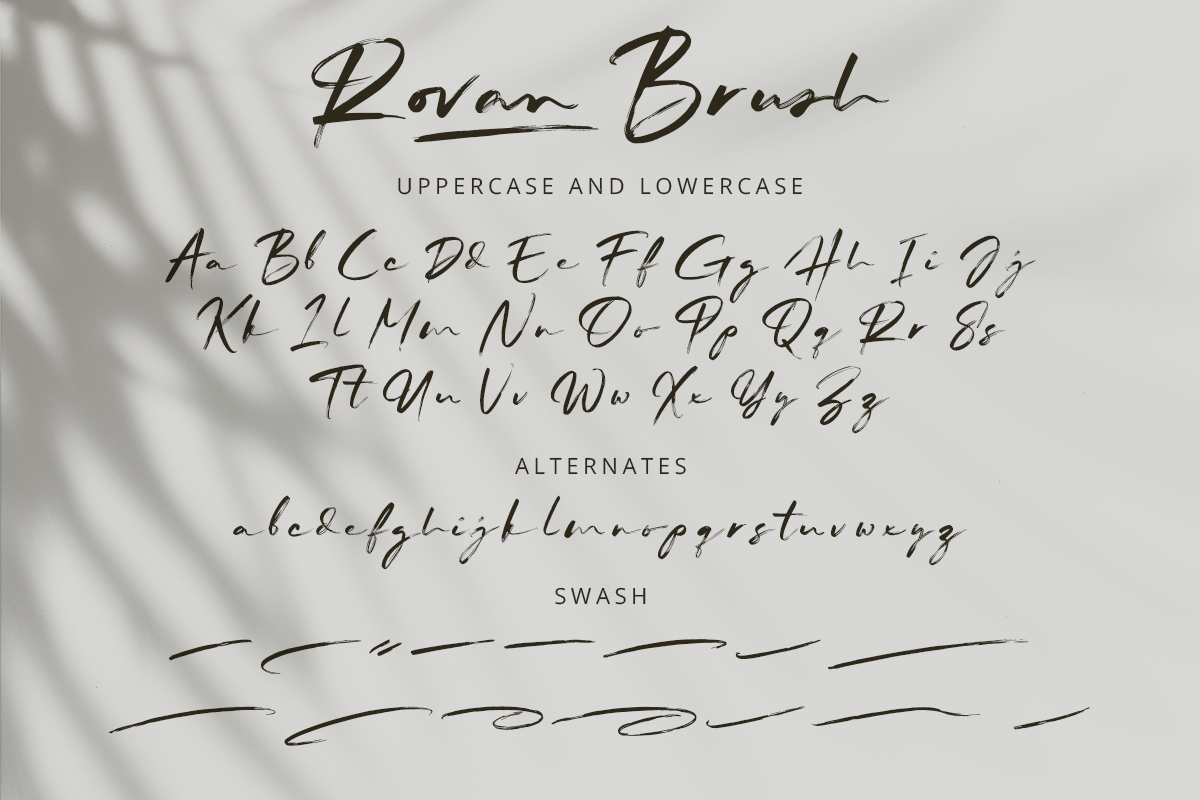 Rovan Brush
UPPERCASE AND LOWERCASE
Aa Bb Cc Dd Ee Ff Gg Hh Ii Jj
Kk Ll Mm Nn Oo Pp Qq Rr Ss
Tt Uu Vv Ww Xx Yy Zz
ALTERNATES
abcdefghijklmnopqrstuvwxyz
SWASH